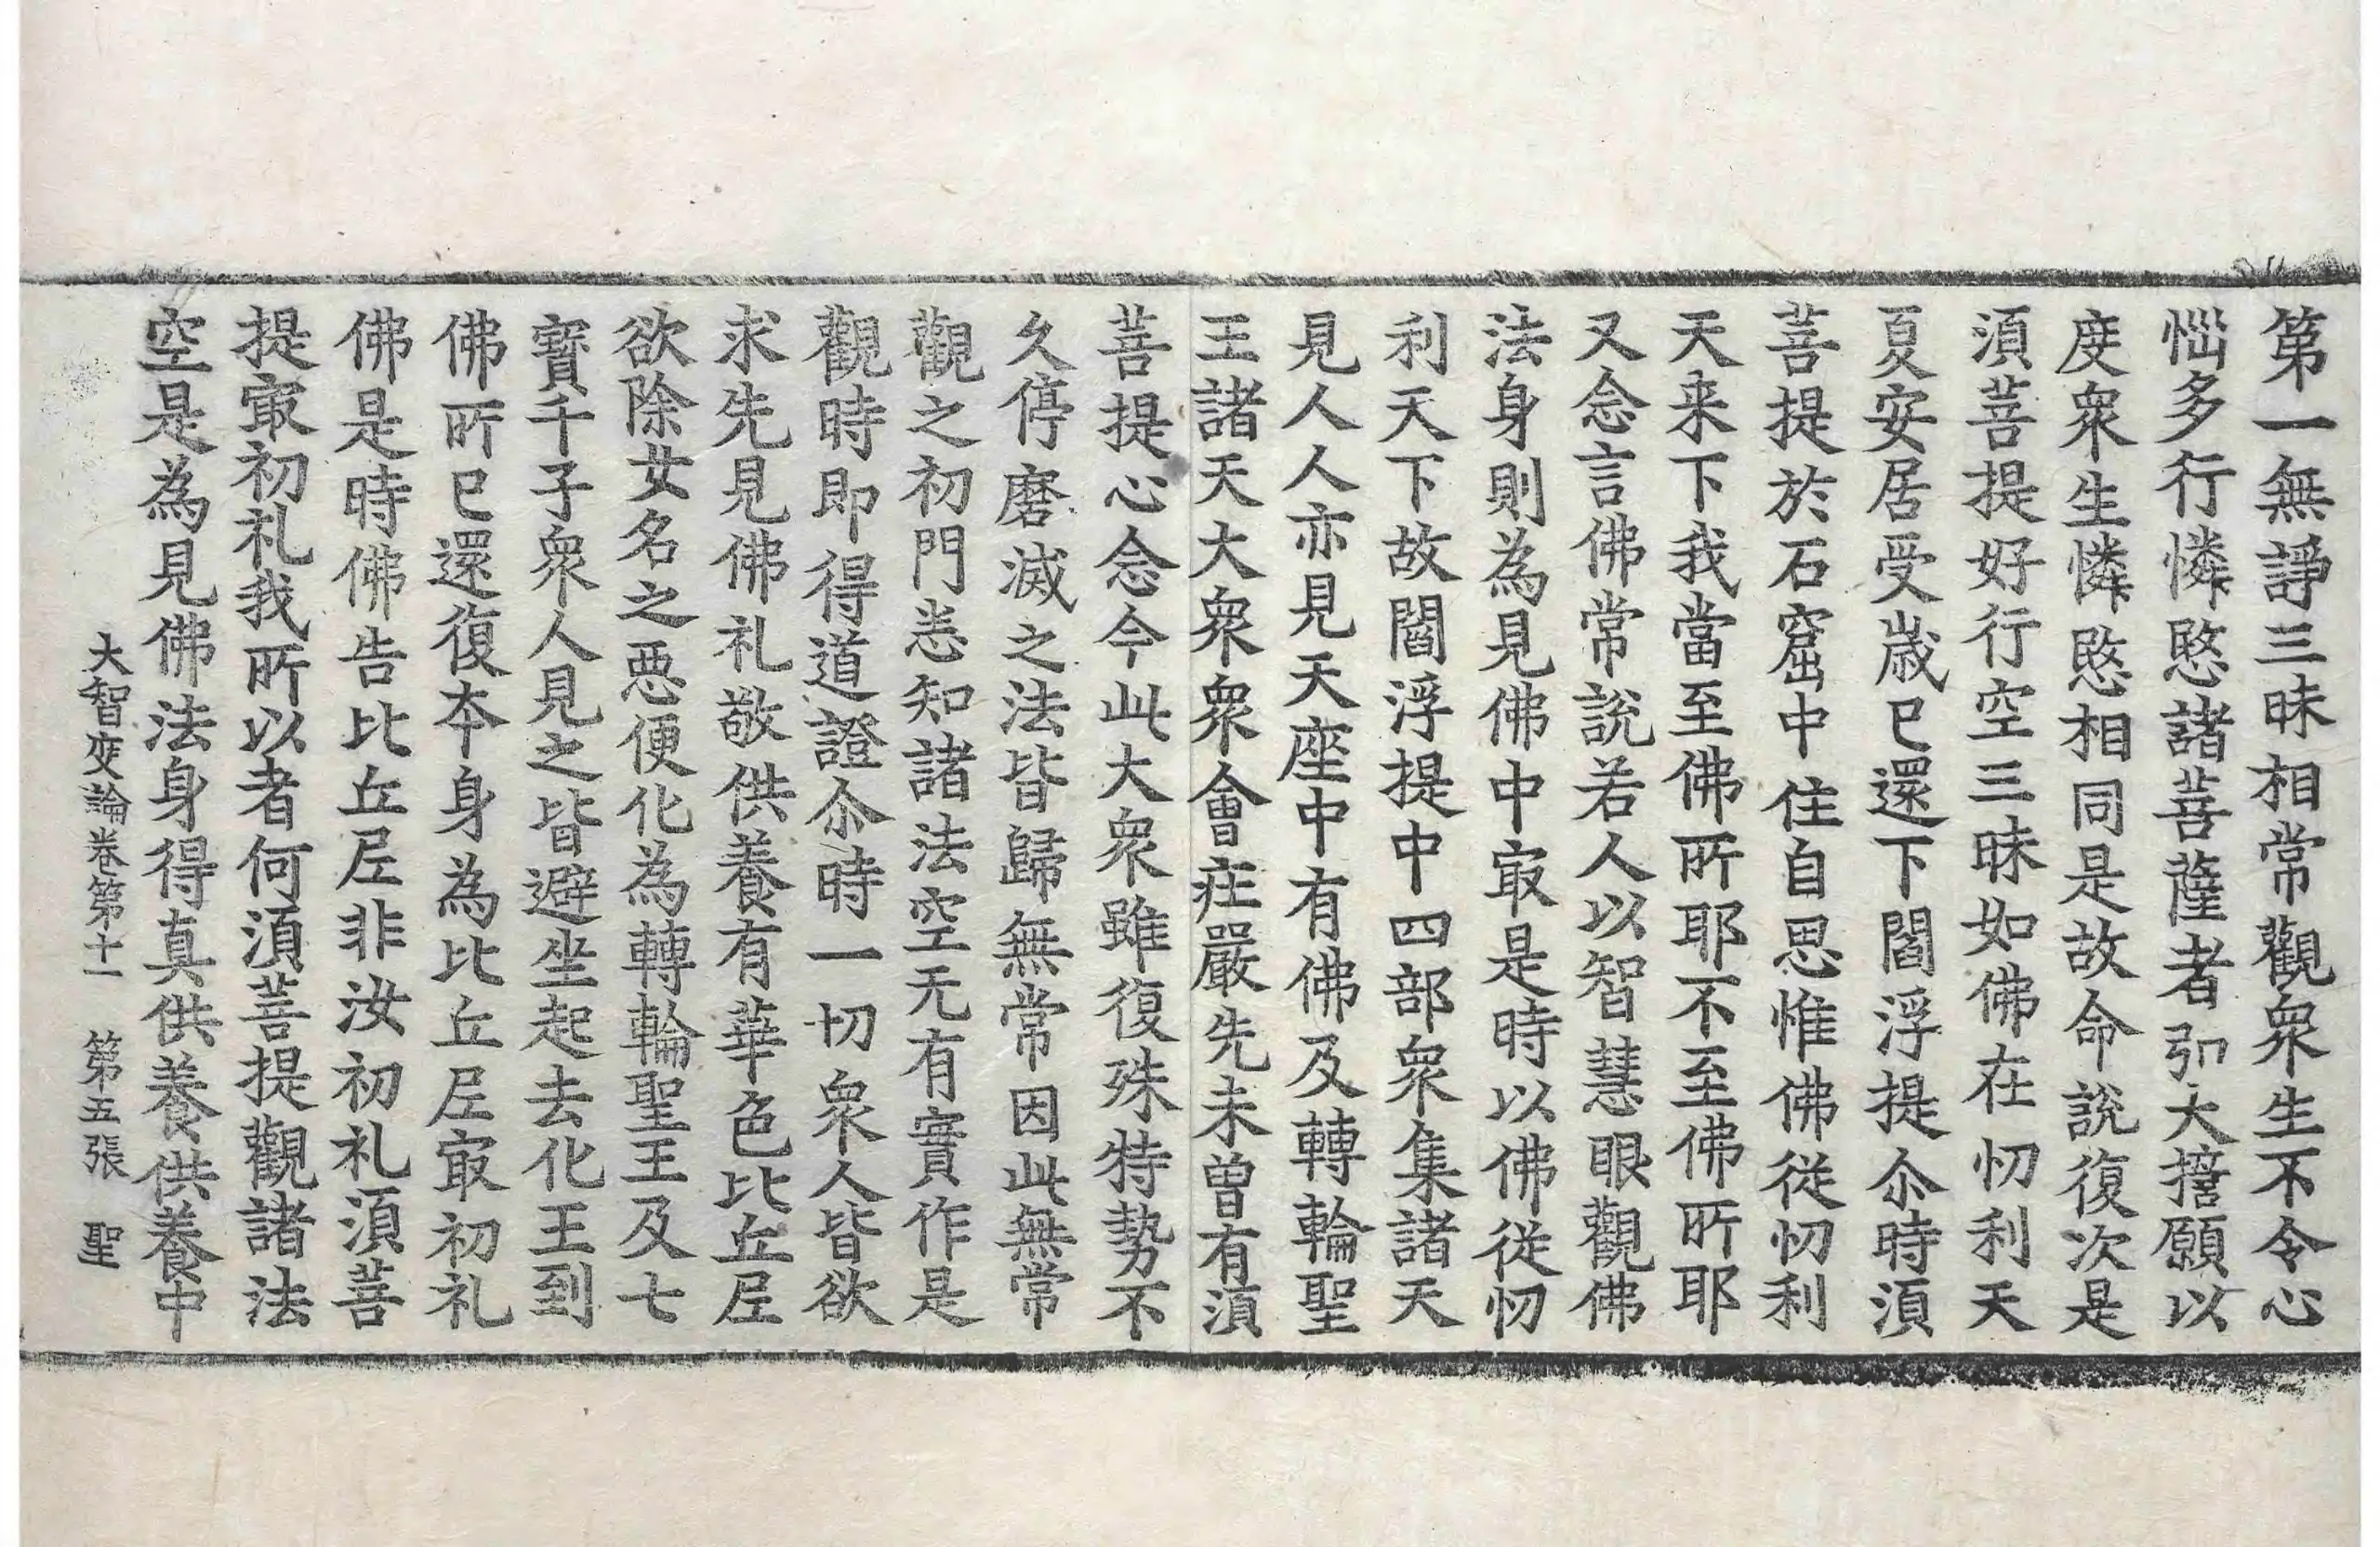 第一無諍三昧相常觀衆生不令心
惱多行憐愍諸菩薩者弘大誓願以
度衆生憐愍相同是故命說復次是
湏菩提好行空三昧如佛在忉利天
夏安居受歲已還下閻浮提尒時湏
菩提於石窟中住自思惟佛從忉利
天来下我當至佛所耶不至佛所耶
又念言佛常說若人以智慧眼觀佛
法身則為見佛中㝡是時以佛從忉
利天下故閻浮提中四部衆集諸天
見人人亦見天座中有佛及轉輪聖
王諸天大衆衆會庄嚴先未曾有湏
菩提心念今此大衆雖復殊特勢不
久停磨滅之法皆歸無常因此無常
觀之初門悉知諸法空无有實作是
觀時即得道證尒時一切衆人皆欲
求先見佛礼敬供養有華色比丘尼
欲除女名之惡便化為轉輪聖王及七
寶千子衆人見之皆避坐起去化王到
佛所已還復本身為比丘尼㝡初礼
佛是時佛告比丘尼非汝初礼湏菩
提㝡初礼我所以者何湏菩提觀諸法
空是為見佛法身得真供養供養中
大智度論卷第十一　第五張　聖